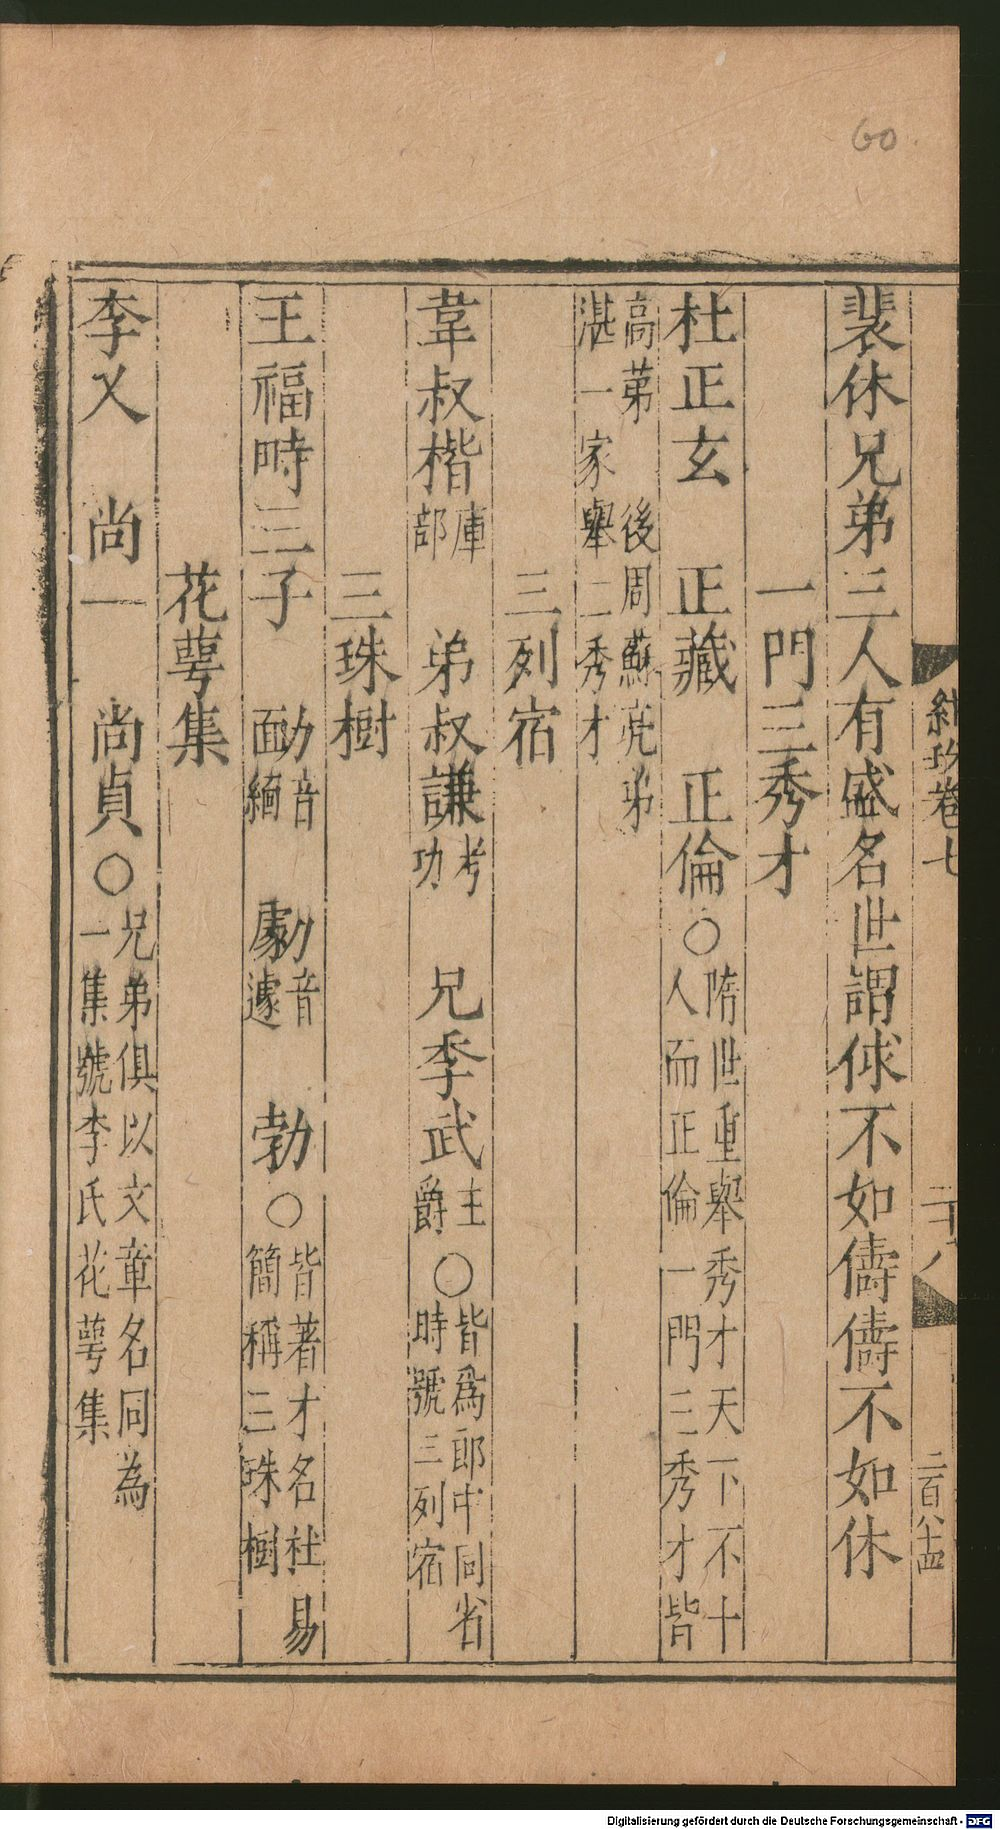 60
裴休兄弟三人有盛名世謂俅不如儔儔不如休
一門三秀才
杜正玄　正藏　正倫○隋世重舉秀才天下不十
人而正倫一門三秀才皆
高第　後周蘇亮弟
湛一家舉二秀才
三列宿
韋叔楷庫部　弟叔謙考功　兄季武主爵○皆爲郎中同省
時號三列宿
三珠樹
王福時三子　勔音緬　勮音遽　勃○皆著才名杜易
簡稱三珠樹
花萼集
李乂　尚一　尚貞○兄弟俱以文章名同為
一集號李氏花萼集
卷七
二十八
二百八十四
Digitalisierung gefördert durch die Deutsche Forschungsgemeinschaft - DFG